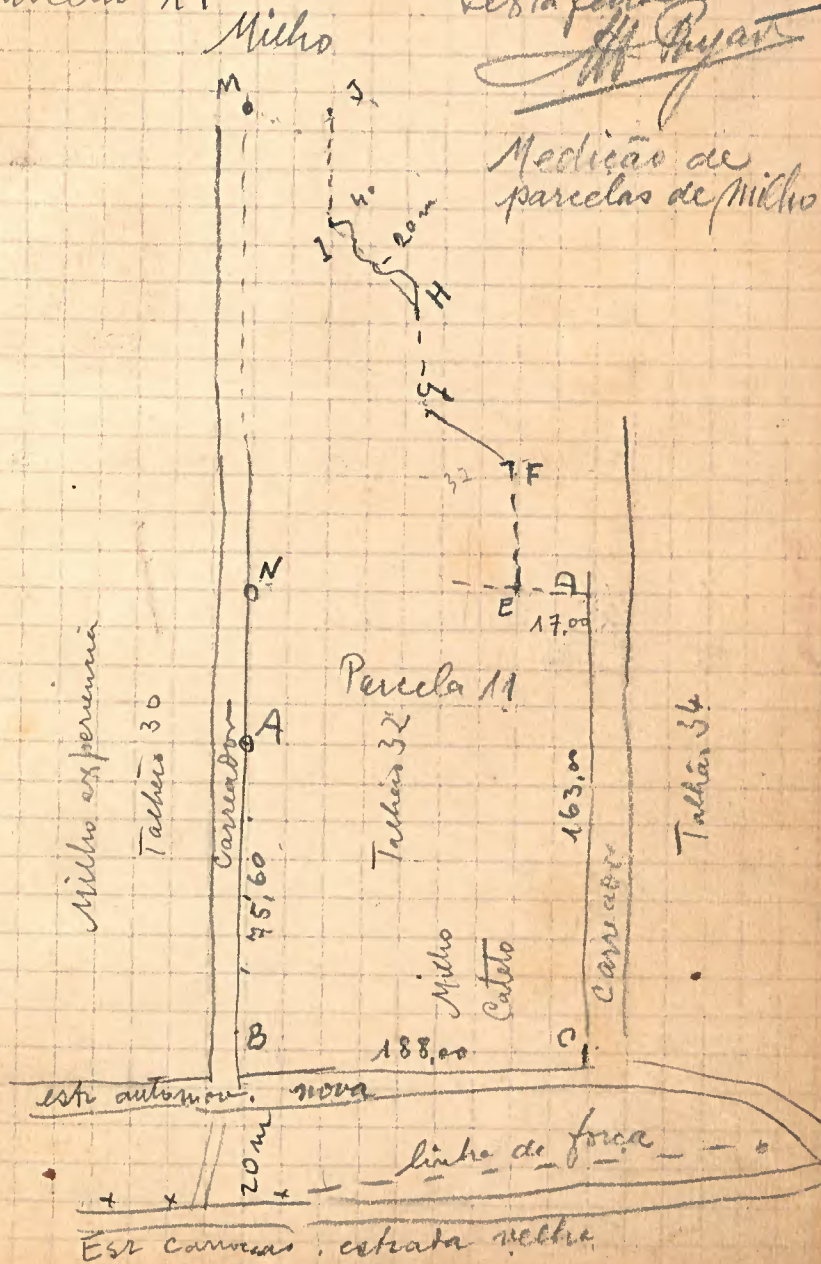 Milho
Medição de
parcelas de Milho
M
J
I
20 m
H
G
32
F
N
E
D
17,00
Parcela 11
A
Milho experiencia
Talhão 30
Carreador
75,60
Talhão 32
163,00
Talhão 34
Milho
Cateto
Carreador
B
188,00
C
estr automov. nova
20 m
linha de força
Estr carroças . estrada velha